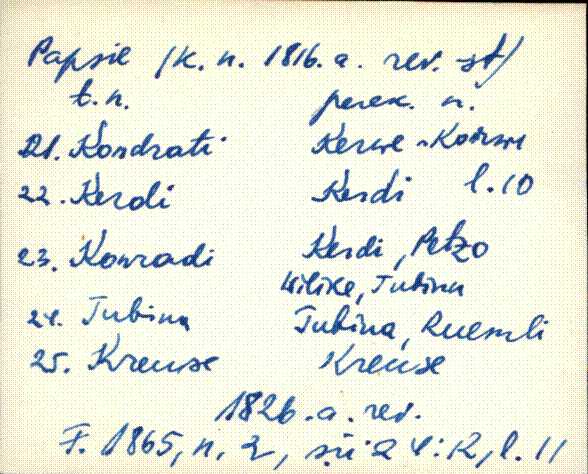 Papsil (k. n. 1816. a. rev. -st)
t. n. perek. n.
21. Kondrati Kerwe ~
22. Kerdi Kerdi l. 10
23. Konradi Kerdi, Petzo
Wilike, Tubina
24. Tubina Tubina, Ruemli
25. Kreuse Kreuse
1826. a. rev.
F. 1865, n. 2, sü 24:12, l. 11